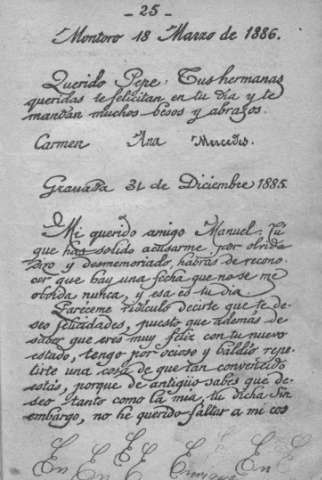 - 25 -
Montoro 18 Marzo de 1886.
Querido Pepe. Tus hermanas
queridas te felicitan en tu dia y te
mandan muchos besos y abrazos.
Carmen Ana Mercedes.
Granada 31 de Diciembre 1885.
Mi querido amigo Manuel. Tu
que has solido acusarme por olvida
dizo y desmemoriado, habrás de recono-
cer que hay una fecha que no se me
olvida nunca, y esa es tu dia.
Paréceme ridículo decirte que te de-
seo felicidades, puesto que además de
saber que eres muy feliz con tu nuevo
estado, tengo por ocioso y baldío repe-
tirte una cosa de que tan convencido
estás, porque de antiguo sabes que de-
seo tanto como la mia, tu dicha. Sin
embargo, no he querido faltar a mi cos
En En En Enrique En En